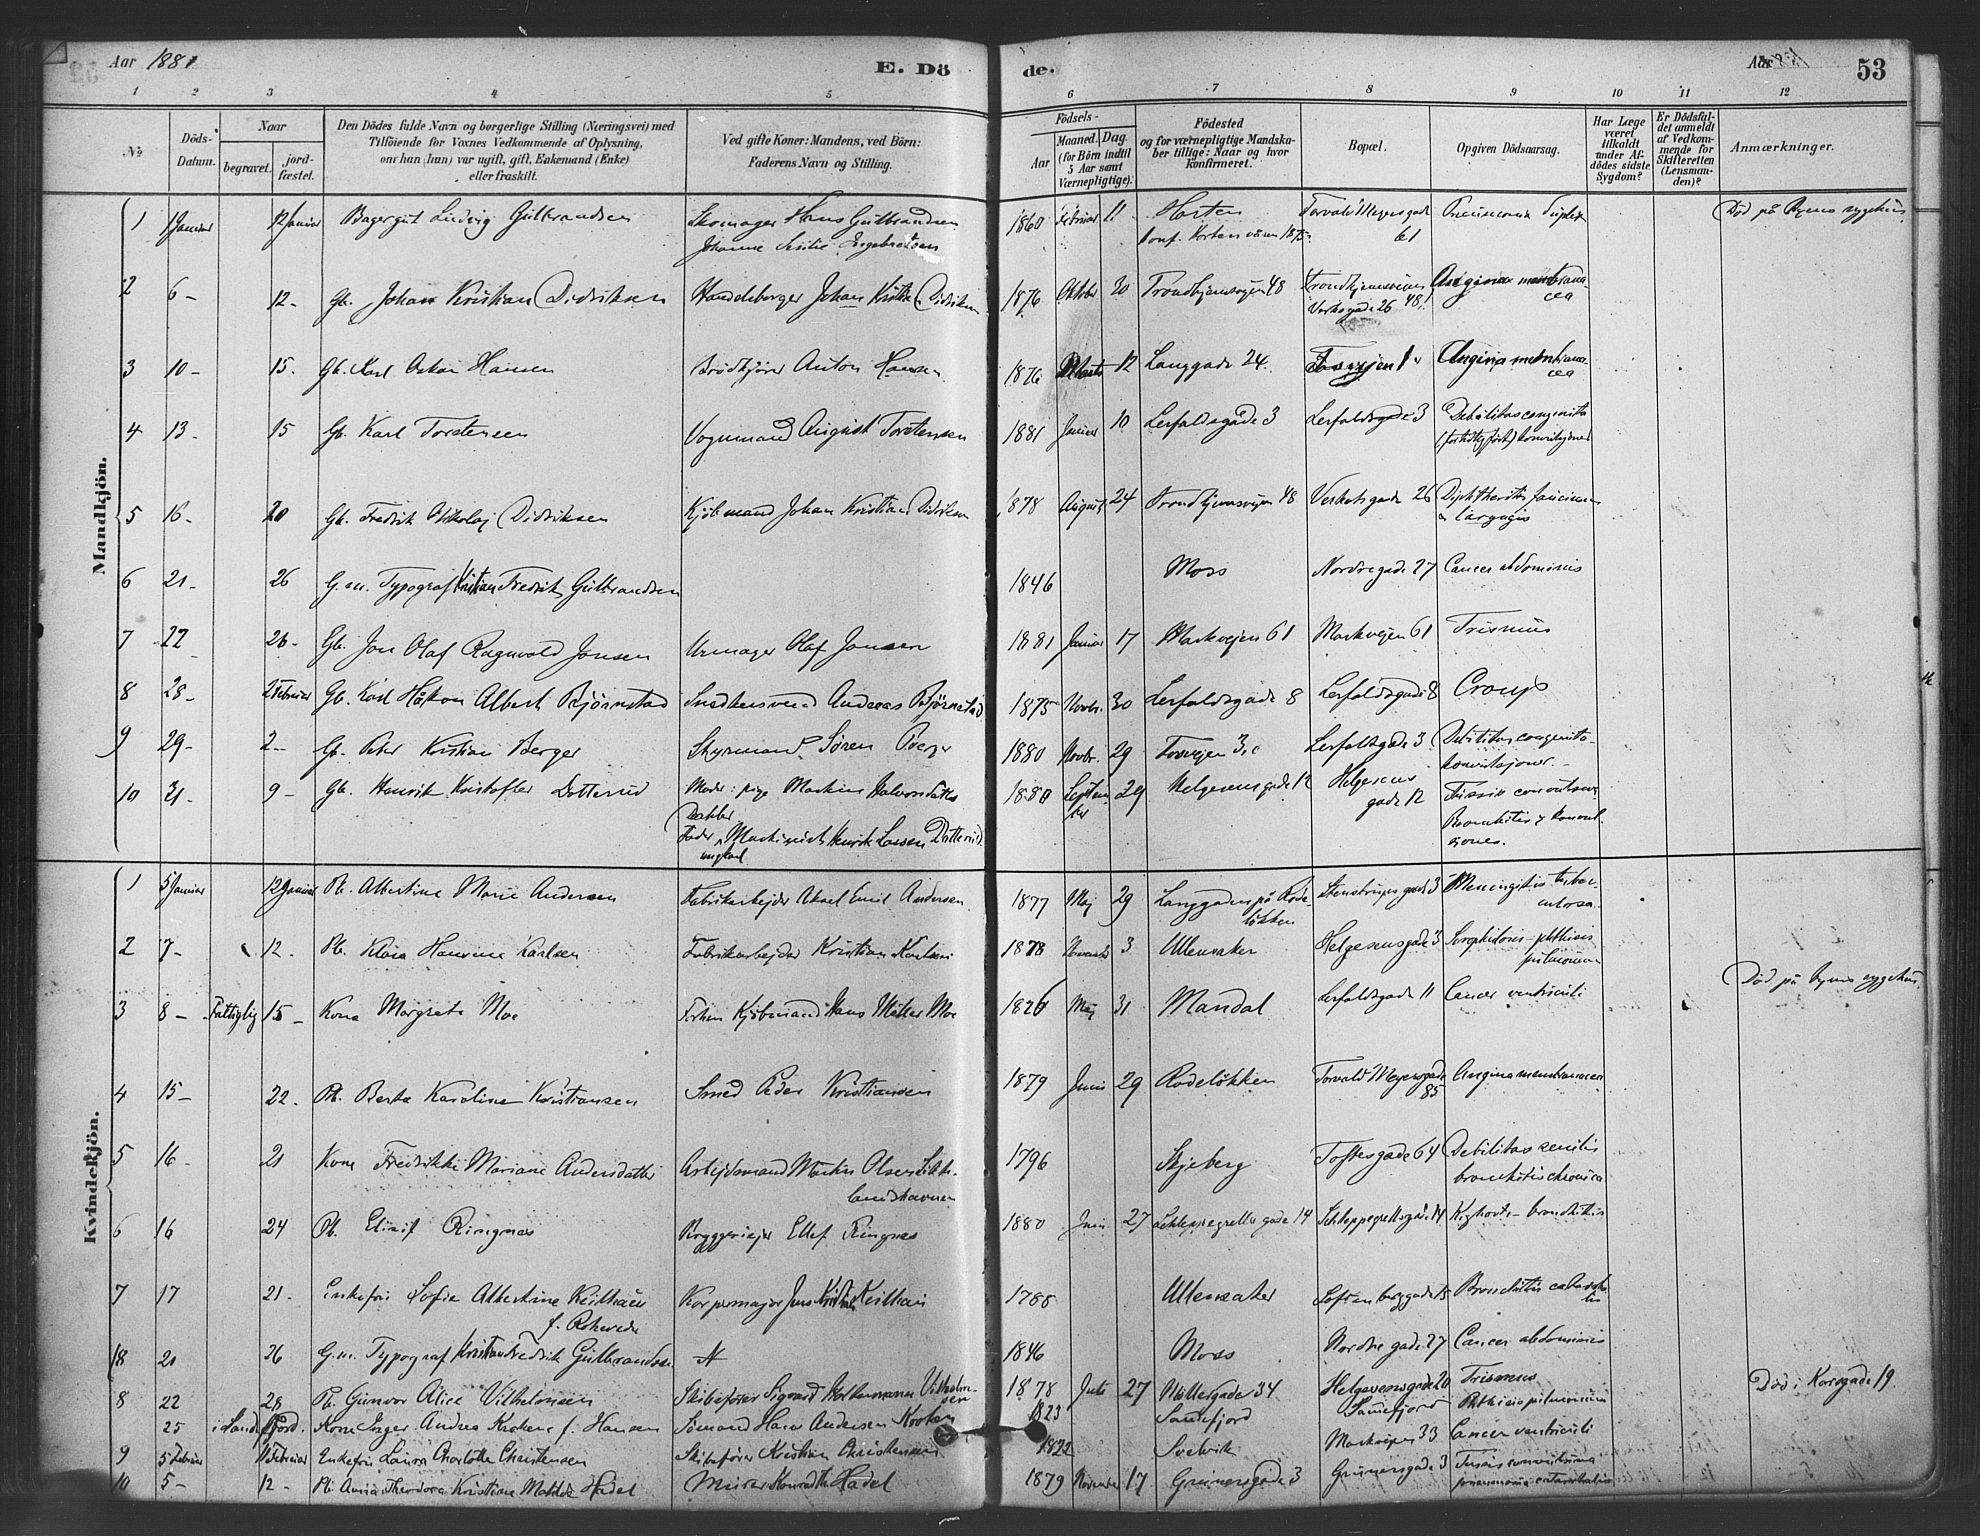 Aar 1881
E. Døde.
Aar 1881
53
1 2 3 4 5 6 7 8 9 10 11 12
No
Döds-Datum.
Naar
begravet.
jord-fæstet.
Den Dödes fulde Navn og borgerlige Stilling (Næringsvei) med
Tilföiende for Voxnes Vedkommende af Oplysning,
om han (hun) var ugift, gift, Enkemand (Enke)
eller fraskilt.
Ved gifte Koner: Mandens, ved Börn:
Faderens Navn og Stilling.
Födsels-
Aar
Maaned. Dag.
(for Börn indtil
5 Aar samt
Værnepligtige).
Födested
og for værnepligtige Mandska-
ber tillige: Naar og hvor
konfirmeret.
Bopæl.
Opgiven Dödsaarsag.
Har Læge
været
tilkaldt
under Af-
dödes sidste
Sygdom?
Er Dödsfal-
det anmeldt
af Vedkom-
mende for
Skifteretten
(Lensman-
den)?
Anmærkninger.
Mandkjön.
1 1 Januar 12 Januar Bagergut Ludvig Gulbrandsen Skomager Hans Gulbrandsen 1860 Februar 11 Horten Torvald Meyersgade Pneumonia duplex Död på Byens sygehus
Johanne Engebretsen Konf. Horten 1875 61
2 6 - 12 - Gb. Johan Kristian Didriksen Handelsborger Johan Kristian Didriksen 1876 Oktober 20 Trondhjemsvejen 48 Angina membrana-
Verksgade 26 cea
3 10 - 15 - Gb. Karl Oskar Hansen Brödkjörer Anton Hansen 1876 12 Langgade 24. Angina membrana-
cea
4 13 - 15 Gb. Karl Torstensen Vognmand August Torstensen 1881 Januar 10 Lerfaldsgade 3 Lerfaldsgade 3 Debilitas congenita
5 16 - 20 Gb. Fredrik Nikolaj Didriksen Kjöbmand Johan Kristian Didriksen 1878 August 24 Trondhjemsvejen 48 Verksgade 26 Diphtheritis faucium
& laryngis
6 21 - 26 G.m. Typograf Kristian Fredrik Gulbrandsen 1846 Moss Nordregade 27 Cancer abdominis
7 22 26 - Gb. Jon Olaf Ragnvald Jonsen Urmager Olaf Jonsen 1881 Januar 17 Markvejen 61 Markvejen 61 Trismus
8 28 - 2 Februar Gb. Karl Håkon Albert Björnstad Snedkersvend Andreas Björnstad 1875 Novbr. 30 Lerfaldsgade 8 Lerfaldsgade 8 Croup
9 29 - 2 - Gb. Peter Kristian Berger Styrmand Sören Berger 1880 Novbr. 29 Lerfaldsgade 3 Debilitas congenita -
konvulsjoner. -
10 31 - 9 - Gb. Henrik Kristoffer Dotterud Moder: pige Martine Halvorsdatter 1880 Septem- 29 Helgesensgade 12 Helgesens Tussis convulsiva
Dahler ber gade 12 Bronkitis & konvul-
Fader, Maskinist Henrik Larsen Dotterud sjones.
ungkarl
Kvindekjön.
1 5 Januar 12 Januar Pb. Albertine Marie Andersen Fabrikarbejder Aksel Emil Andersen 1877 Maj 29 Langgaden på Rode- Stenstrupsgade 3 Meningitis tuber-
lökken culosa.
2 7 - 12 - Pb. Klara Hansine Karlsen Fabrikarbejder Kristian Karlsen 1878 November 3 Ullensaker Helgesensgade 3 Scrophulosis - phthisis
pulmonum
3 8 - Fattiglig 15 - Kone Margrete Moe Forhen Kjöbmand Hans Möller Moe 1826 Maj 31 Mandal Lerfaldsgade 11 Cancer ventriculi Död på Byens sygehus.
4 15 - 22 - Pb. Berta Karoline Kristiansen Smed Peder Kristiansen 1879 Juni 29 Rodelökken Torvald Meyersgade Angina membranacea
85
5 16 - 21 Kone Fredrikke Mariane Andersdatter Arbejdsmand Martin Olsen 1796 Skjeberg Toftesgade 64 Debilitas senilis
bronkitis chronica
6 16 24 Pb. Elisif Ringnes Bryggeriejer Ellef Ringnes 1880 Juni 27 Schleppegrells gade 14 Schleppegrellsgade 14 Kighoste - bronkitis
7 17 21 - Enkefru Sofie Albertine Keilhau Korpsmajor Jens Kristian Keilhau 1788 Ullensaker Sofienberggade 15 Bronchitis catarrha-
f. lis
18 21 26 G.m. Typograf Kristian Fredrik Gulbrandsen 1846 Moss Nordregade 27 Cancer abdominis
8 22 28 Pb. Gunvor Alice Vilhelmsen Skibsförer Sigvard Vilhelm- 1878 Juli 27 Möllergade 34 Helgesensgade 20 Trismus Död i Korsgade 19
sen
25 i Sandefjord. Kone Inger Andrea Krokene f. Hansen Sömand Hans Andersen Kroken 1823 Sandefjord Sandefjord Phthisis pulmonum
9 5 Februar Februar Enkefru Laura Charlotte Christensen Skibsförer Kristian Christensen 1822 Svelvik Markvejen 33 Cancer ventriculi
10 5 - 12 - Pb. Anna Theodora Kristiane Matilde Hadel Murer Konrad Hadel 1879 November 17 Grünersgade 3 Grünersgade 3 Tussis convulsiva
pneumonia catarrhalis